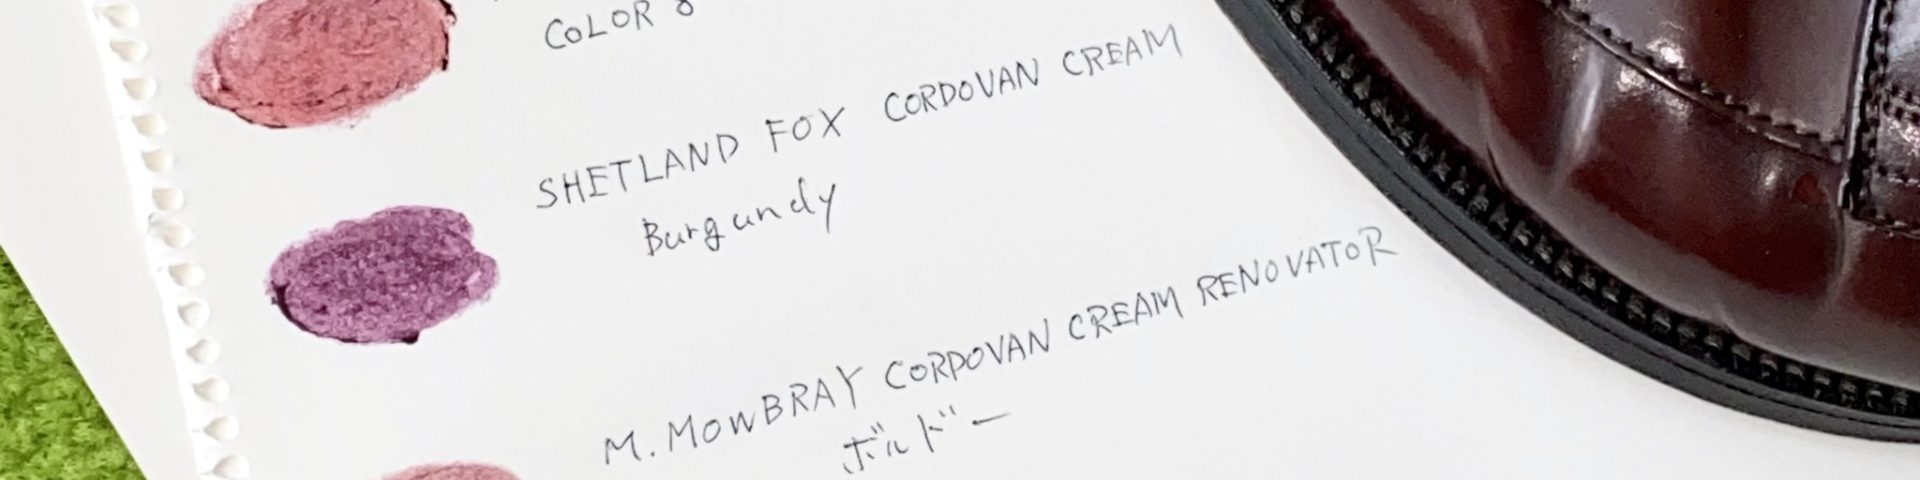 COLOR 8
SHETLAND FOX CORDOVAN CREAM
Burgundy
M. MOWBRAY CORDOVAN CREAM RENOVATOR
ボルドー